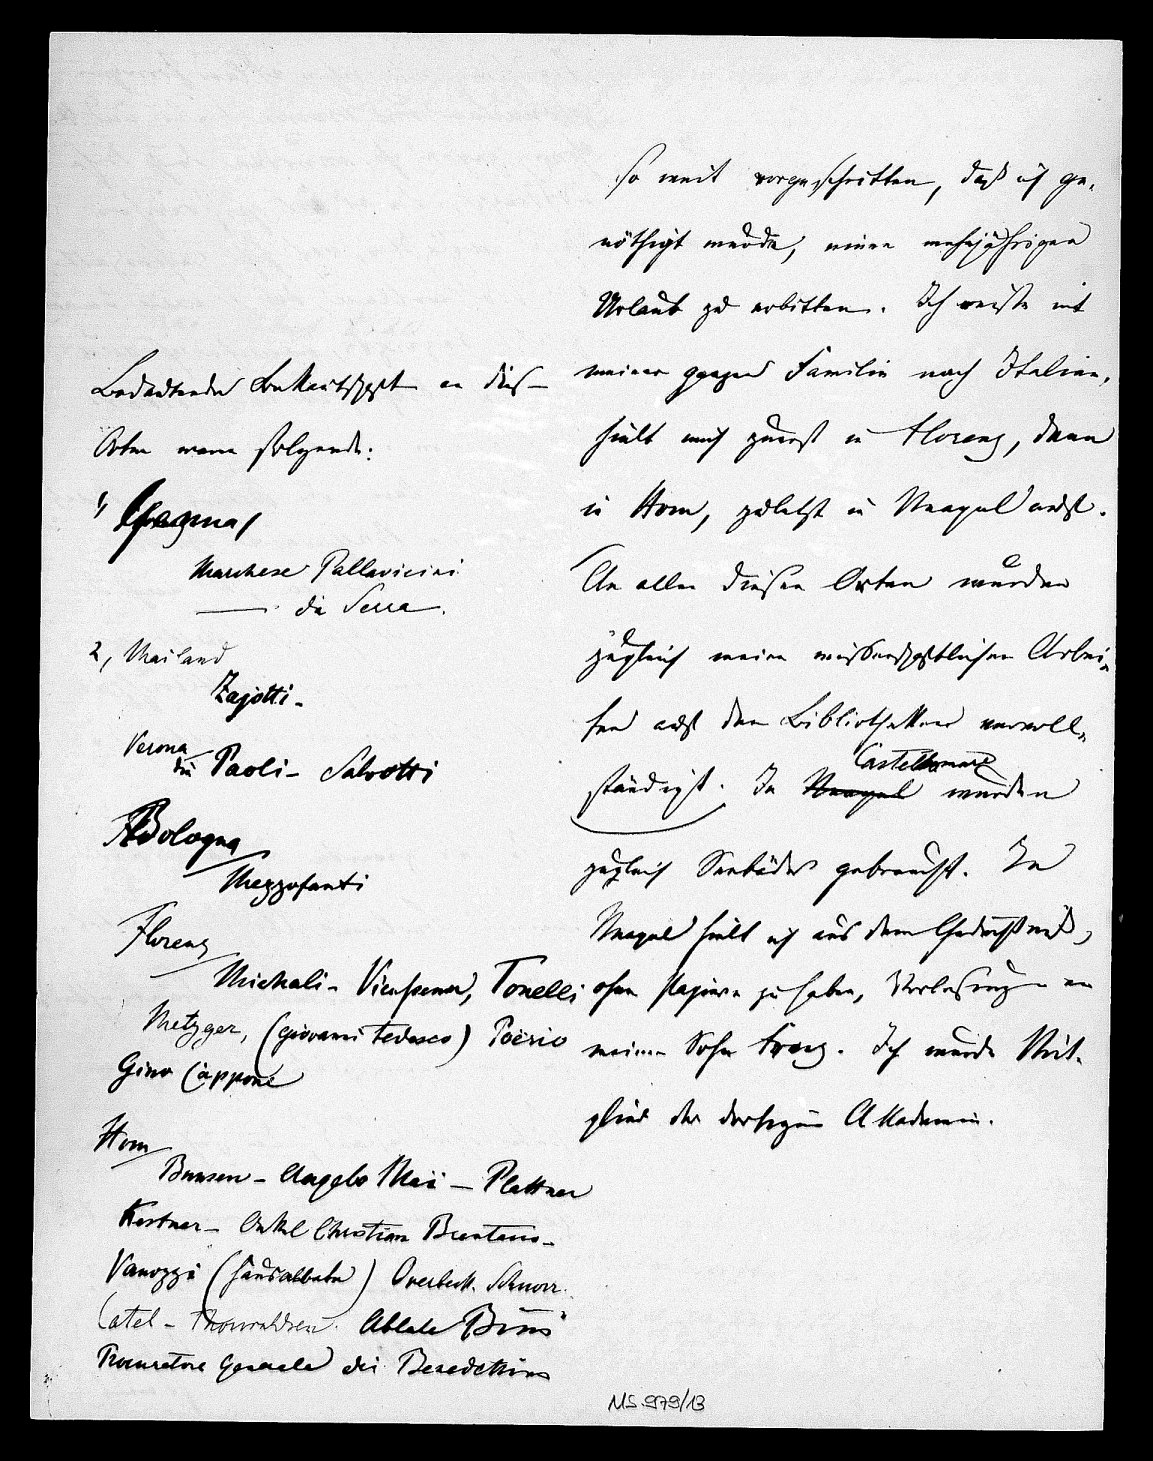 so weit vorgeschritten, daß ich ge-
nöthigt wurde, einen mehrjährigen
Urlaub zu erbitten. Ich reiste mit
meiner ganzen Familie nach Italien,
hielt mich zuerst in Florenz, dann
in Rom, zuletzt in Neapel auf.
An allen diesen Orten wurden
zugleich meine wissenschaftlichen Arbei-
ten auf den Bibliotheken vervoll-
ständigt. In Neapel Castellamare wurden
zugleich Seebäder gebraucht. In
Neapel hielt ich aus dem Gedächtniß,
ohne Papiere zu haben, Vorlesungen an
meinen Sohn Franz. Ich wurde Mit-
glied der dortigen Akademie.
Bedeutende Bekanntschaft an dies
Orten waren folgende:
1,
Marchese Pallavicini
— di Serra.
2, Mailand
Zajotti-
Verona
die Paoli- Salvotti
Bologna
Mezzofanti
Florenz
Michali- Vieusseux, Tonelli
Metzger, (Giovanni tedesco) Poërio
Gino Cappone
Rom
Bunsen - Angelo Mai - Plattner
Kestner - Onkel Christian Brentano-
Vanozzi (Hausabbate) Overbeck. Schnorr.
Catel - Thorwaldsen. Abbate Bini
Procuratore Generale dei Benedettini
MS.979/13